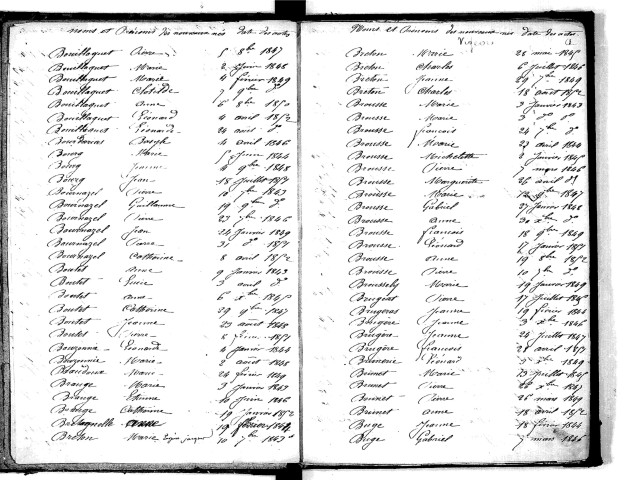 noms et Prénoms des nouveaux nés Date des actes
Bouillaguet Pierre 5 8bre 1847
Bouillaguet Marie 2 juin 1848
Bouillaguet Marie 4 février 1849
Bouillaguet Clotilde 7 9bre do
Bouillaguet anne 6 8bre 1850
Bouillaguet Léonard 4 avril 1852
Bouillaguet Léonard 24 avril do
Basyle 4 avril 1846
Bourg Marie 5 1844
Bourg Jeanne 4 9bre 1848
Bourg Jean 18 juillet 1851
Bournazel Pierre 10 7bre 1843
Bournazel Guillaume 19 9bre do
Bournazel Pierre 23 7bre 1846
Bournazel Jean 24 janvier 1849
Bournazel Pierre 31 do 1851
Bournazel Catherine 8 avril 1852
Boutet anne 9 janvier 1843
Boutet 3 avril do
Boutet anne 6 xbre 1845
Boutet Catherine 29 9bre 1847
Boutet Jeanne 23 août 1848
Boutet Pierre 8 1851
Léonard 4 janvier 1844
Marie 2 août 1848
Marie 24 février 1849
Brange Marie 3 janvier 1843
Brange Etienne 10 juin 1846
Brange Catherine 19 janvier 1852
anne 19 février 1844
Marie 10 7bre 1843
Noms et Prénoms des nouveaux nés Date des actes
Breton Marie 28 mai 1845
Breton Charles 6 juillet 1846
Breton Jeanne 29 7bre 1849
Breton Charles 18 août 1852
Brousse Marie 3 janvier 1843
Brousse Marie 3 do do
Brousse francois 24 7bre do
Brousse Marie 23 avril 1844
Brousse Michelette 2 janvier 1845
Brousse Pierre 7 mars 1846
Brousse Marguerite 26 avril do
Brousse Marie 1847
Brousse Gabriel 27 janvier 1848
Brousse anne 30 xbre do
Brousse francois 18 9bre 1849
Brousse Léonard 17 janvier 1851
Brousse anne 19 8bre 1852
Brousse Pierre 10 7bre do
Marie 19 janvier 1849
Pierre 17 juillet 1845
Brugeras Jeanne 19 février 1844
Brugère Jeanne 3 xbre 1846
Brugère Jeanne 24 juillet 1847
Brugère francois 28 avril 1851
Léonard 1849
Brunet Marie 23 juillet 1845
Brunet Pierre 22 xbre 1847
Brunet Pierre 26 mars 1849
Brunet anne 18 avril 1852
Buge Jeanne 18 février 1844
Buge Gabriel 7 mars 1846